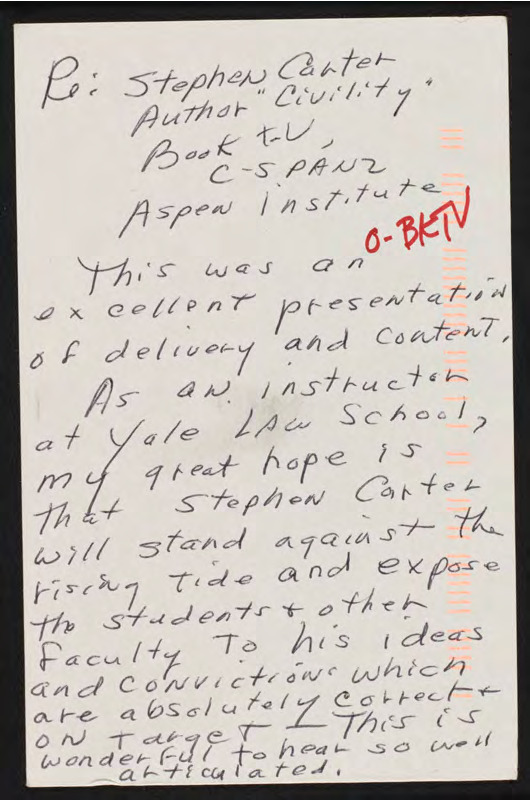 Re: Stephen Carter
Author "Civility"
Book t.V,
C-SPAN2
Aspen institute
O-BKTV
This was an
excellent presentation
of delivery and content.
As an instructor
at Yale LAW School,
my great hope is
that Stephen Carter
will stand against the
rising tide and expose
the students + other
faculty To his ideas
and convictions which
are absolutely correct +
on target — This is
wonderful to hear so well
articulated.